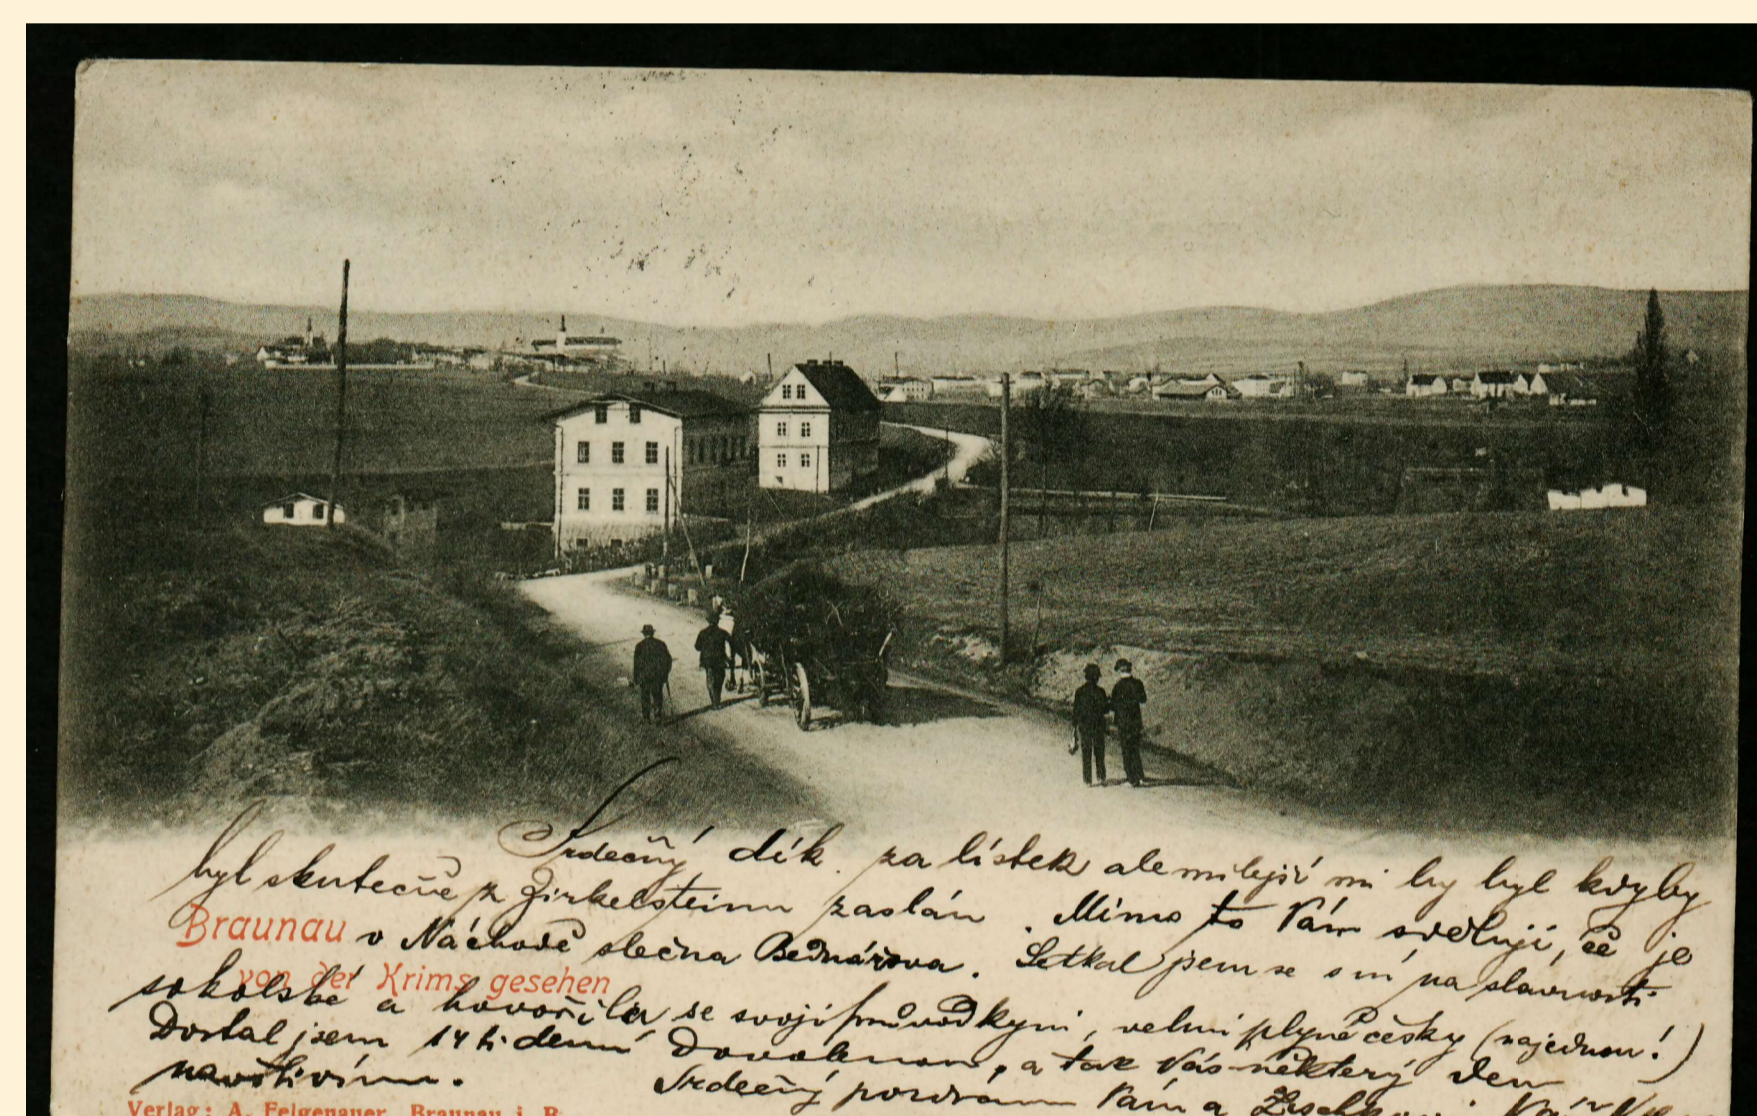 Srdečný dík za lístek ale milejší mi by byl kdyby
byl skutečně z Zirkelsteinu zaslán. Mimo to Vám sděluji, že je
Braunau
v Náchodě slečna Bednářova. Setkal jsem se s ní na slavnosti
von der Krims gesehen
sokolské a hovořila se svojí průvodkyní, velmi plyně česky (najednou!)
Dostal jsem 14ti denní Dovolenou, a tak Vás některý den
navštívím.
Srdečný pozdrav Vám a
Verlag: A. Felgenauer, Braunau i. B.